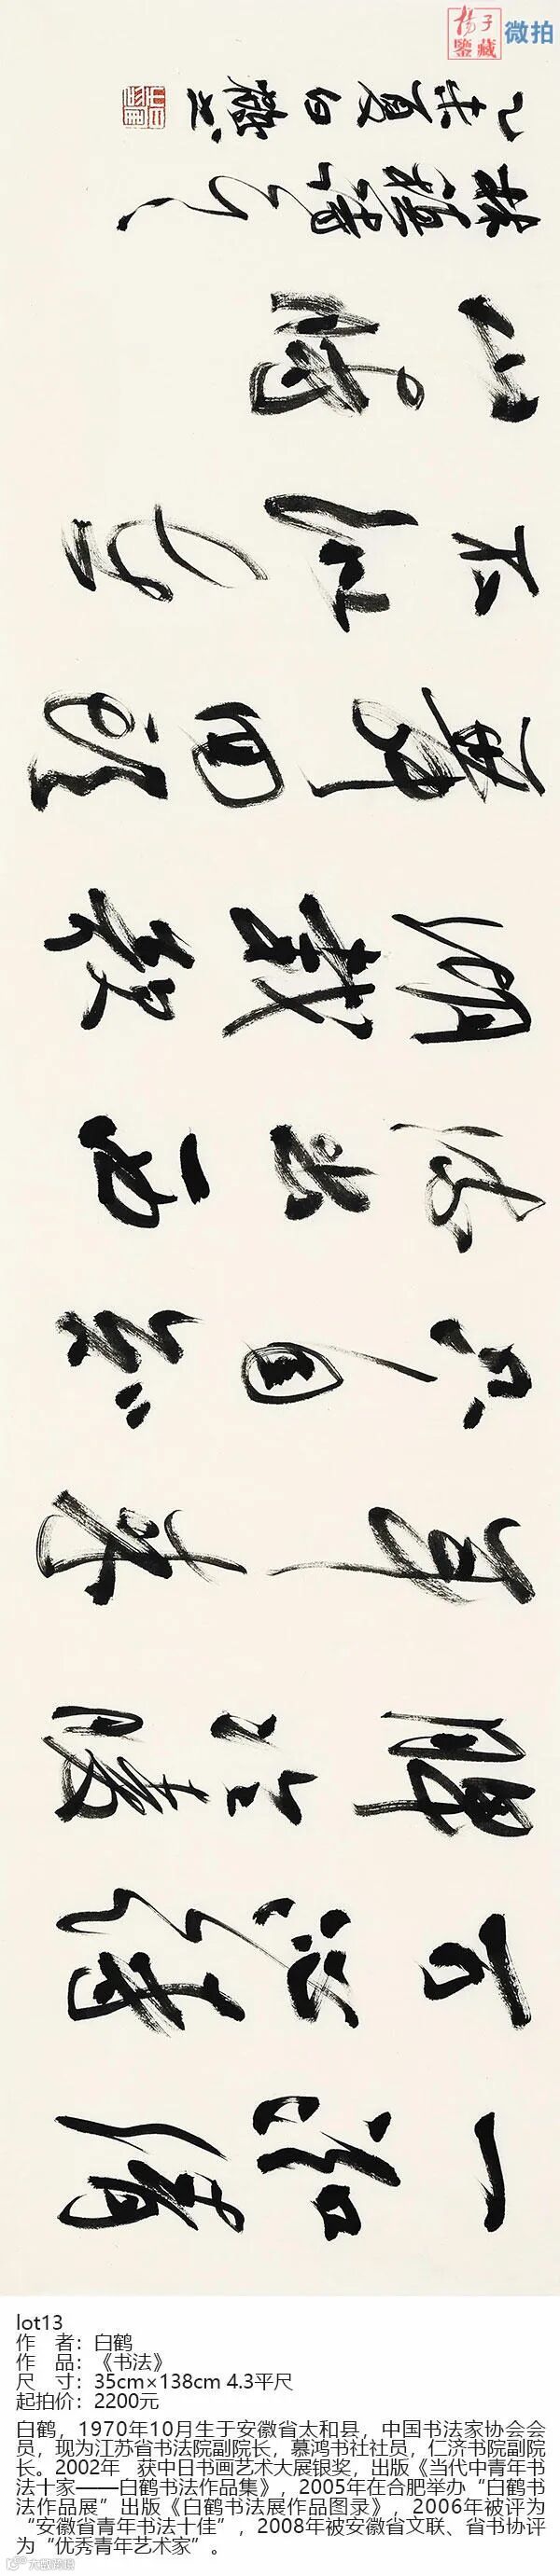 扬子
鉴藏
微拍
一泓清
可沁诗
脾冷暖
年来
只自知
流出西
湖载歌
舞回头
不似在
山时
林稹诗
乙未夏白鹤
lot13
作 者：白鹤
作 品：《书法》
尺 寸：35cm×138cm 4.3平尺
起拍价：2200元
白鹤，1970年10月生于安徽省太和县，中国书法家协会会
员，现为江苏省书法院副院长，慕鸿书社社员，仁济书院副院
长。2002年 获中日书画艺术大展银奖，出版《当代中青年书
法十家——白鹤书法作品集》，2005年在合肥举办“白鹤书
法作品展”出版《白鹤书法展作品图录》，2006年被评为
“安徽省青年书法十佳”，2008年被安徽省文联、省书协评
为“优秀青年艺术家”。